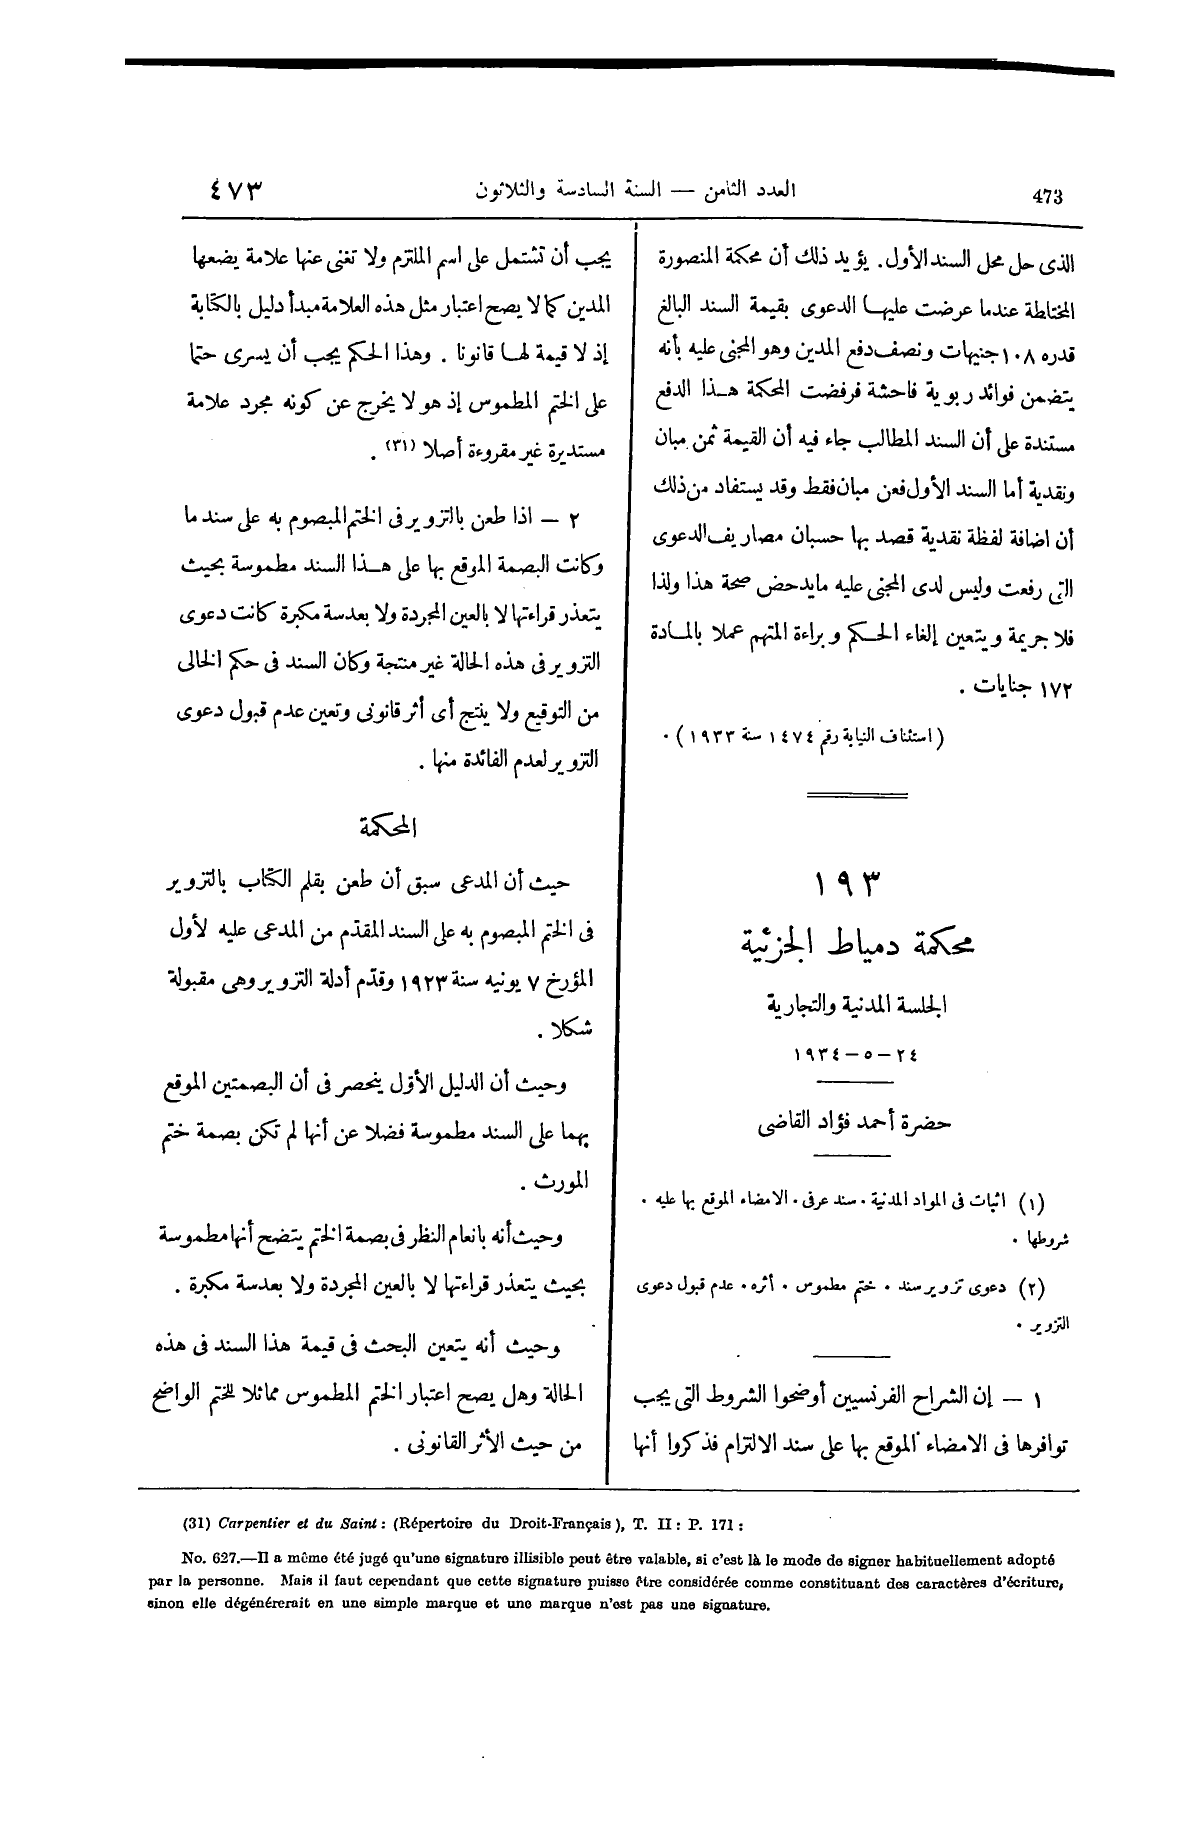 473
العدد الثامن — السنة السادسة والثلاثون
٤٧٣
الذى حل محل السند الأول. يؤيد ذلك أن محكمة المنصورة
المختلطة عندما عرضت عليها الدعوى بقيمة السند البالغ
قدره ١٠٨ جنيهات ونصف دفع المدين وهو المجنى عليه بأنه
يتضمن فوائد ربوية فاحشة فرفضت المحكمة هذا الدفع
مستندة على أن السند المطالب جاء فيه أن القيمة ثمن مبان
ونقدية أما السند الأول فعن مبان فقط وقد يستفاد من ذلك
أن اضافة لفظة نقدية قصد بها حسبان مصاريف الدعوى
التى رفعت وليس لدى المجنى عليه مايدحض صحة هذا ولذا
فلا جريمة ويتعين إلغاء الحكم وبراءة المتهم عملا بالمادة
١٧٢ جنايات .
(استئناف النيابة رقم ١٤٧٤ سنة ١٩٣٣) .
١٩٣
محكمة دمياط الجزئية
الجلسة المدنية والتجارية
٢٤ – ٥ – ١٩٣٤
حضرة أحمد فؤاد القاضى
(١) اثبات فى المواد المدنية . سند عرفى . الامضاء الموقع بها عليه .
شروطها .
(٢) دعوى تزوير سند . ختم مطموس . أثره . عدم قبول دعوى
التزوير .
١ — إن الشراح الفرنسيين أوضحوا الشروط التى يجب
توافرها فى الامضاء الموقع بها على سند الالتزام فذكروا أنها
يجب أن تشتمل على اسم الملتزم ولا تغنى عنها علامة يضعها
المدين كما لا يصح اعتبار مثل هذه العلامة مبدأ دليل بالكتابة
إذ لا قيمة لها قانونا . وهذا الحكم يجب أن يسرى حتما
على الختم المطموس إذ هو لا يخرج عن كونه مجرد علامة
مستديرة غير مقروءة أصلا (٣١) .
٢ — اذا طعن بالتزوير فى الختم المبصوم به على سند ما
وكانت البصمة الموقع بها على هذا السند مطموسة بحيث
يتعذر قراءتها لا بالعين المجردة ولا بعدسة مكبرة كانت دعوى
التزوير فى هذه الحالة غير منتجة وكان السند فى حكم الخالى
من التوقيع ولا ينتج أى أثر قانونى وتعين عدم قبول دعوى
التزوير لعدم الفائدة منها .
المحكمة
حيث أن المدعى سبق أن طعن بقلم الكتاب بالتزوير
فى الختم المبصوم به على السند المقدّم من المدعى عليه لأول
المؤرخ ٧ يونيه سنة ١٩٢٣ وقدّم أدلة التزوير وهى مقبولة
شكلا .
وحيث أن الدليل الأوّل ينحصر فى أن البصمتين الموقع
بهما على السند مطموسة فضلا عن أنها لم تكن بصمة ختم
المورث .
وحيث أنه بانعام النظر فى بصمة الختم يتضح أنها مطموسة
بحيث يتعذر قراءتها لا بالعين المجردة ولا بعدسة مكبرة .
وحيث أنه يتعين البحث فى قيمة هذا السند فى هذه
الحالة وهل يصح اعتبار الختم المطموس مماثلا للختم الواضح
من حيث الأثر القانونى .
(31) Carpentier et du Saint : (Répertoire du Droit-Français), T. II : P. 171 :
No. 627.—Il a même été jugé qu'une signature illisible peut être valable, si c'est là le mode de signer habituellement adopté
par la personne. Mais il faut cependant que cette signature puisse être considérée comme constituant des caractères d'écriture,
sinon elle dégénérerait en une simple marque et une marque n'est pas une signature.